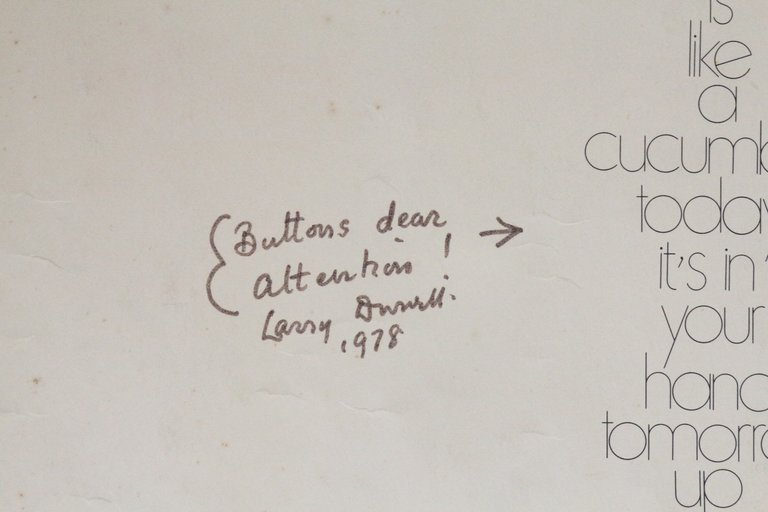 Buttons dear
attention !
Larry Durrell.
1978
is
like
a
cucumb
today
it's in
your
hand
tomorro
up